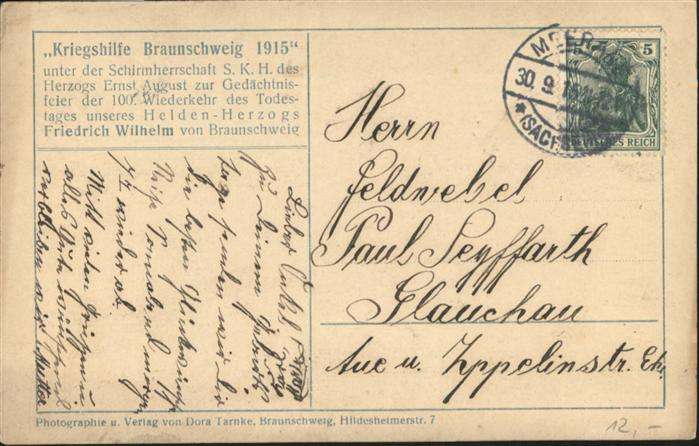 „Kriegshilfe Braunschweig 1915“
unter der Schirmherrschaft S. K. H. des
Herzogs Ernst August zur Gedächtnis-
feier der 100. Wiederkehr des Todes-
tages unseres Helden-Herzogs
Friedrich Wilhelm von Braunschweig
MEERA
30. 9. 15
* (SACH
5 5
DEUTSCHES REICH
Herrn
Feldwebel
Paul Seyffarth
Glauchau
Aue u. Zppelinstr. Ek.
Lieber Onkel
Zu Deinem
Tage senden wir Dir
die besten Glückwünsche
wieder ab.
Mit vielen Grüßen
alles Gute wünschend
verbleiben wir
Photographie u. Verlag von Dora Tarnke, Braunschweig, Hildesheimerstr. 7
12,-